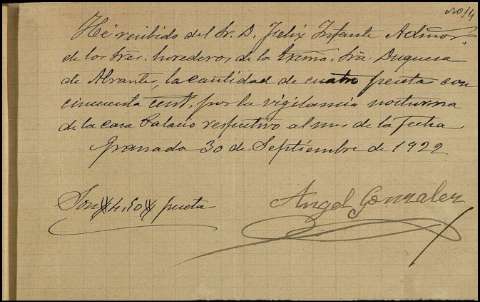 nº 4
He recibido del Sr. D. Felix Infante Admor.
de los Sres. herederos de la Exma. Sra. Duquesa
de Abrantes, la cantidad de cuatro peseta con
cincuenta cent. por la vigilancia nocturna
de la casa Palacio respectivo al mes de la fecha.
Granada 30 de Septiembre de 1922
Son 4,50 peseta
Angel Gonzalez